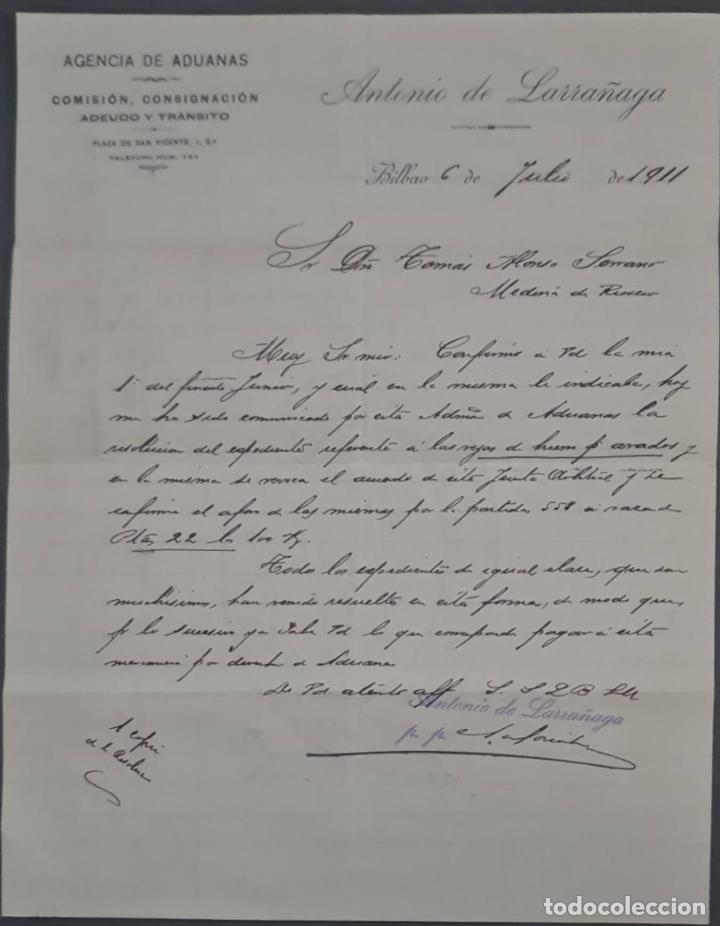 AGENCIA DE ADUANAS
COMISIÓN, CONSIGNACIÓN
ADEUDO Y TRÁNSITO
PLAZA DE SAN VICENTE, 1, 2.º
TELÉFONO NÚM.
Antonio de Larrañaga
Bilbao 6 de Julio de 1.911
Sr Dn Tomás Alonso Serrano
Medina de Rioseco
Muy Sr mio: Confirmo a Vd la mia
1º del finado Junio, y cual en la misma le indicaba, hoy
me ha sido comunicado por esta Admon de Aduanas la
resolucion del expediente referente á las rejas de hierro pª arados y
en la misma se revoca el acuerdo de esta Junta Arbitral y se
confirma el aforo de las mismas por la partida 558 a razon de
Ptas 22 los 100 K.
Todos los expedientes de igual clase, que son
muchisimos, han venido resueltos en esta forma, de modo que,
pr lo sucesivo ya sabe Vd lo que corresponde pagar á esta
mercancia por derechos de Aduana
De Vd atento aff S. S. Q B S M
Antonio de Larrañaga
p. p.
1 copia
de la
todocoleccion